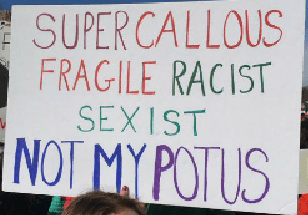 SUPER CALLOUS
FRAGILE RACIST
SEXIST
NOT MY POTUS